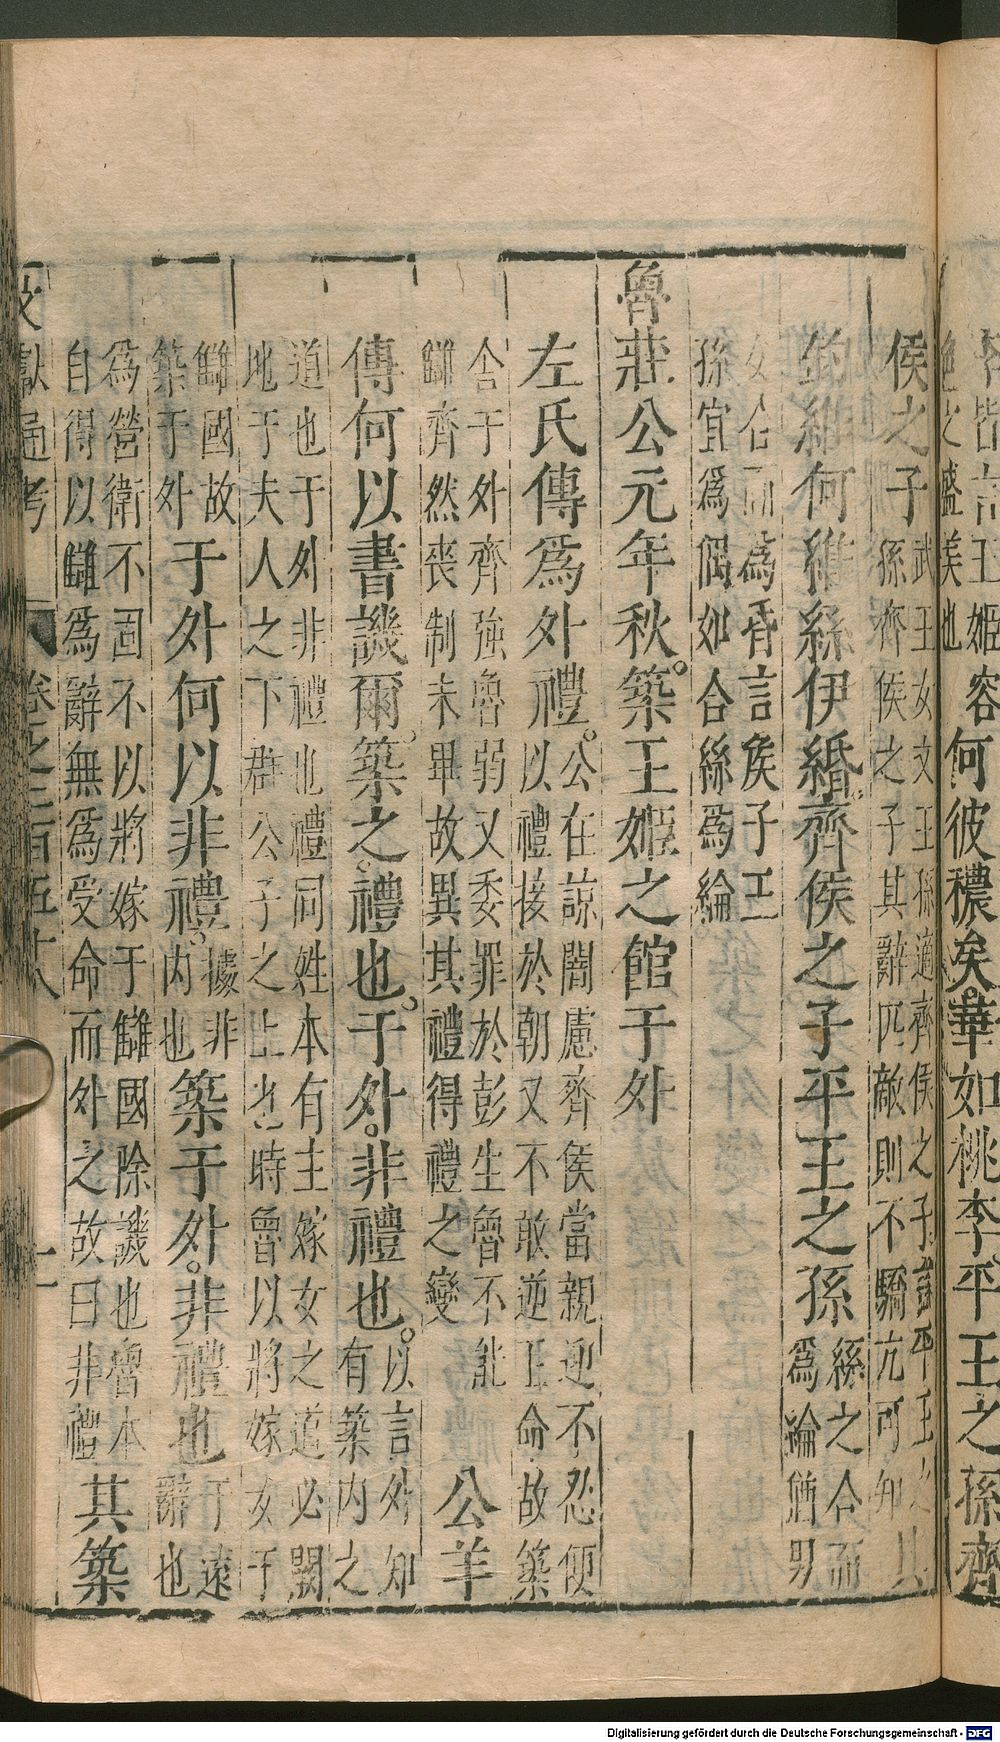 皆言王姬容
之盛美也
何彼穠矣華如桃李平王之孫齊
侯之子
武王女文王孫適齊侯之子或平王之
孫齊侯之子其辭匹敵則不驕亢可知
釣維何維絲伊緡齊侯之子平王之孫
絲之合而
為淪猶男
女合而為昏言侯子王
孫宜為偶如合絲為綸
魯莊公元年秋。築王姬之館于外
左氏傳為外禮。
公在諒闇慮齊侯當親迎不忍便
以禮接於朝又不敢逆王命故築
舍于外齊強魯弱又委罪於彭生魯不能
讎齊然喪制未畢故異其禮得禮之變
公羊
傳何以書譏爾。築之禮也。于外。非禮也。
以言外知
有築內之
道也于外非禮也禮同姓本有主嫁女之道必闕
地于夫人之下群公子之上也時魯以將嫁女于
讎國故
築于外
于外何以非禮。
據非
內也
築于外。非禮也
于遠
辭也
為營衛不固不以將嫁于讎國除譏也魯本
自得以讎為辭無為受命而外之故曰非禮
其築
獻通考
Digitalisierung gefördert durch die Deutsche Forschungsgemeinschaft - DFG